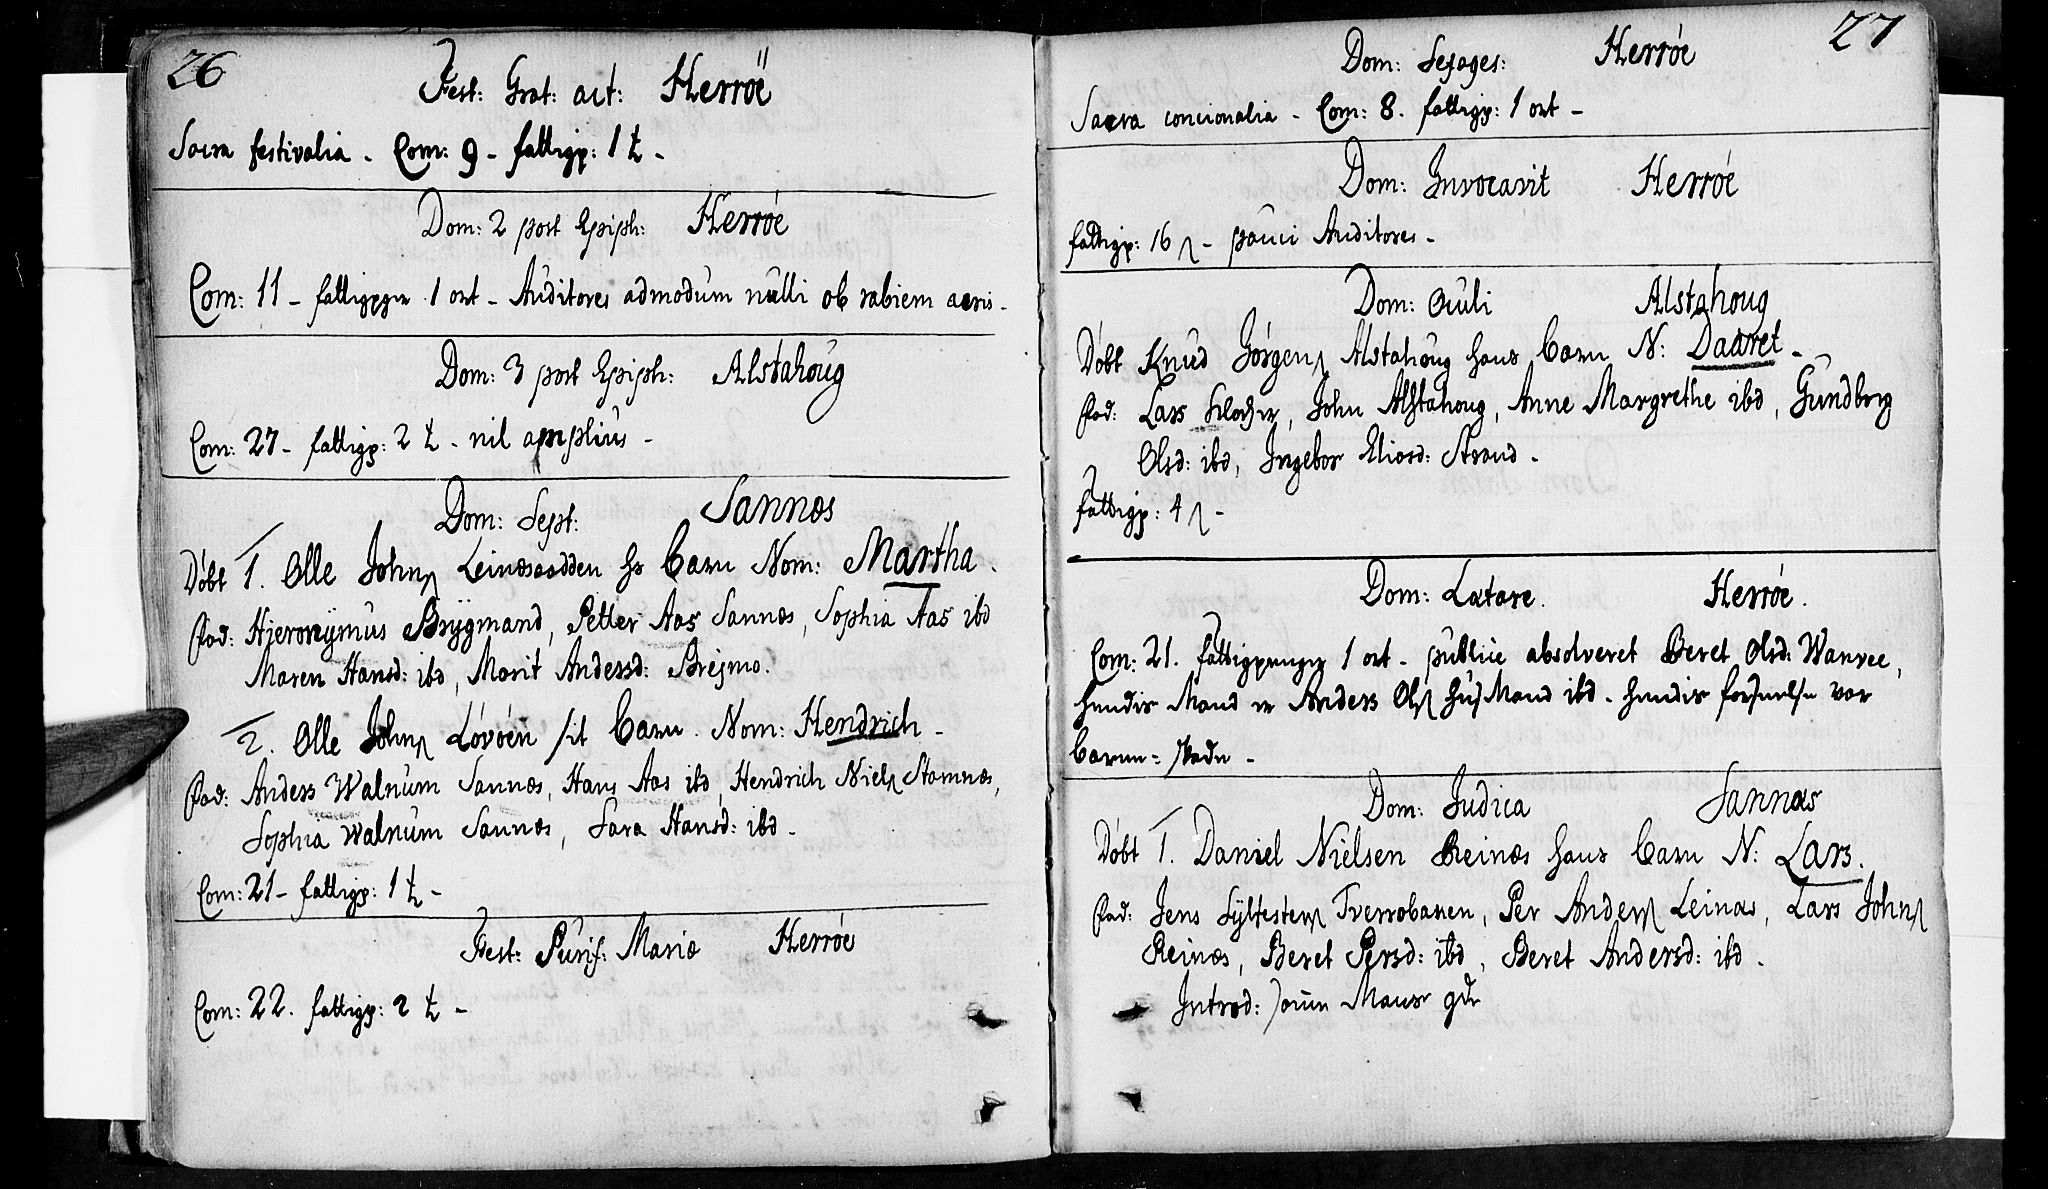 26
Fest: Grat: act: Herröe
Sacra festivalia. Com: 9 - fattigp: 1 ℔ -
Dom: 2 post Epiph: Herröe
Com: 11 - fattigpger 1 ort - Auditores admodum nulli ob rabiem aeris -
Dom: 3 post Epiph: Alstahoug
Com: 27 - fattigp: 2 ℔ - nil amplius -
Dom: Sept: Sannæs
Döbt 1. Olle Johns Leinæsodden hs barn Nom: Martha.
Fad: Hieronymus Brygmand, Petter Aas Sannæs, Sophia Aas ibd
Maren Hansd: ibd, Marit Andersd: Breimo.
2. Olle Johns Lövöen sit barn. Nom: Hendrich -
Fad: Anders Walnum Sannæs, Hans Aas ibd, Hendrich Niels Stamnæs,
Sophia Walnum Sannæs, Sara Hansd: ibd -
Com: 21 - fattigp: 1 ℔ -
Fest: Purif: Mariæ Herröe
Com: 22. fattigp: 2 ℔ -
27
Dom: Sexages: Herröe
Sacra concionalia - Com: 8. fattigp: 1 ort -
Dom: Invocavit Herröe
fattigp: 16 s - pauci Auditores -
Dom: Oculi Alstahoug
Döbt Knud Jörgens Alstahoug hans barn N: Daaret -
Fad: Lars Klocher, John Alstahoug, Anne Margrethe ibd, Gundberg
Olsd: ibd, Ingebor Eliasd: Strand -
fattigp: 4 s -
Dom: Lætare. Herröe.
Com: 21. fattigpenger 1 ort - publice absolveret Beret Olsd: Wanvee,
hendis Mand er Anders Ols huus Mand ibd - hendis forseelse var
Barne-
Dom: Judica Sannæs
Döbt 1. Daniel Nielsen Reinæs hans barn N: Lars.
Fad: Jens Sylfesters Tverrobacken, Per Anders Leinæs, Lars Johns
Reinæs, Beret Persd: ibd, Beret Andersd: ibd -
Introd: